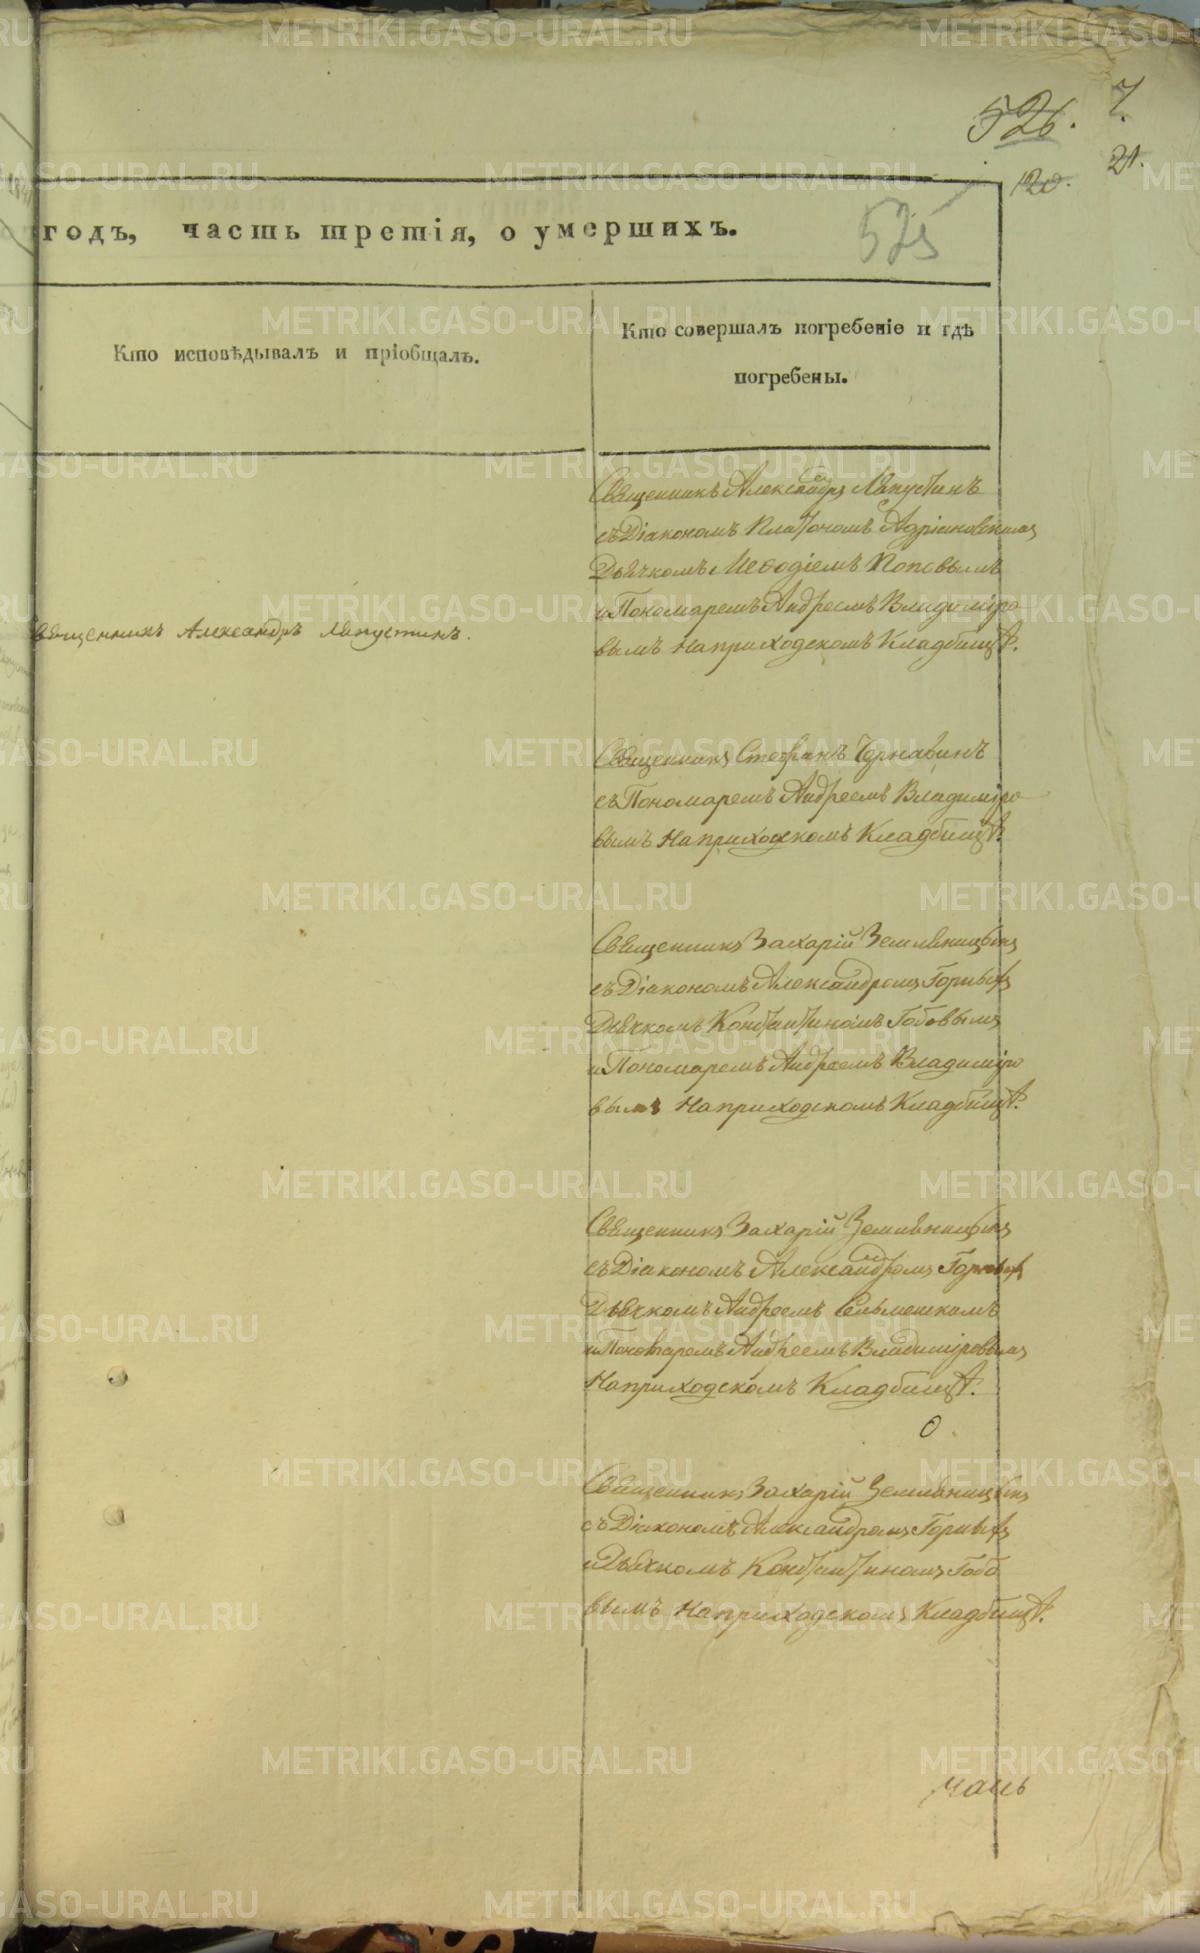 526. 7.
120. 21.
годъ, часть третія, о умершихъ.
525
Кто исповѣдывалъ и пріобщалъ.
Кто совершалъ погребеніе и гдѣ
погребены.
Священникъ Александръ Лапустинъ
съ Діакономъ Платономъ Адріановскимъ
Дьячкомъ Меѳодіемъ Поповымъ
и Пономаремъ Андреемъ Владиміро
вымъ На приходскомъ Кладбищѣ.
Священникъ Александръ Лапустинъ.
Священникъ Стефанъ Чернавинъ
съ Пономаремъ Андреемъ Владиміро
вымъ На приходскомъ Кладбищѣ.
Священникъ Захарій Земляницынъ
съ Діакономъ Александромъ Горныхъ
Дьячкомъ Константиномъ Габовымъ
и Пономаремъ Андреемъ Владиміро
вымъ На приходскомъ Кладбищѣ.
Священникъ Захарій Земляницынъ
съ Діакономъ Александромъ Горныхъ
Дьячкомъ Андреемъ
и Пономаремъ Андреемъ Владиміровымъ
На приходскомъ Кладбищѣ.
Священникъ Захарій Земляницынъ
съ Діакономъ Александромъ Горныхъ
и Дьячкомъ Константиномъ Габо
вымъ На приходскомъ Кладбищѣ.
METRIKI.GASO-URAL.RU